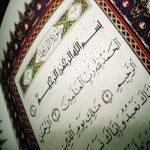 بِسْمِ اللَّهِ الرَّحْمٰنِ الرَّحِيمِ
الْحَمْدُ لِلَّهِ رَبِّ الْعَالَمِينَ الرَّحْمٰنِ
الرَّحِيمِ مَالِكِ يَوْمِ الدِّينِ
إِيَّاكَ نَعْبُدُ وَإِيَّاكَ